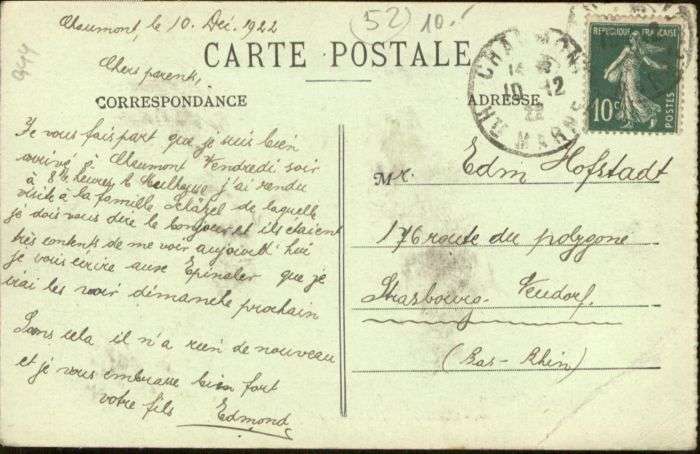 Chaumont, le 10. Déc. 1922
(52) 10.-
CARTE POSTALE
Chers parents,
CORRESPONDANCE
ADRESSE
REPUBLIQUE FRANÇAISE
10c
POSTES
CHAUMONT
10-12
22
HTE MARNE
Je vous fais part que je suis bien
arrivé à Chaumont Vendredi soir
à 8 heures j'ai rendu
visite à la famille de laquelle
je dois vous dire le bonjour et ils étaient
très contents de me voir aujourd'hui
je vous écrire aux Epinaler que je
irai les voir dimanche prochain
Sans cela il n'a rien de nouveau
et je vous embrasse bien fort
votre fils Edmond
Mr. Edm Hofstadt
176 route du polygone
Strasbourg-Neudorf.
(Bas-Rhin)